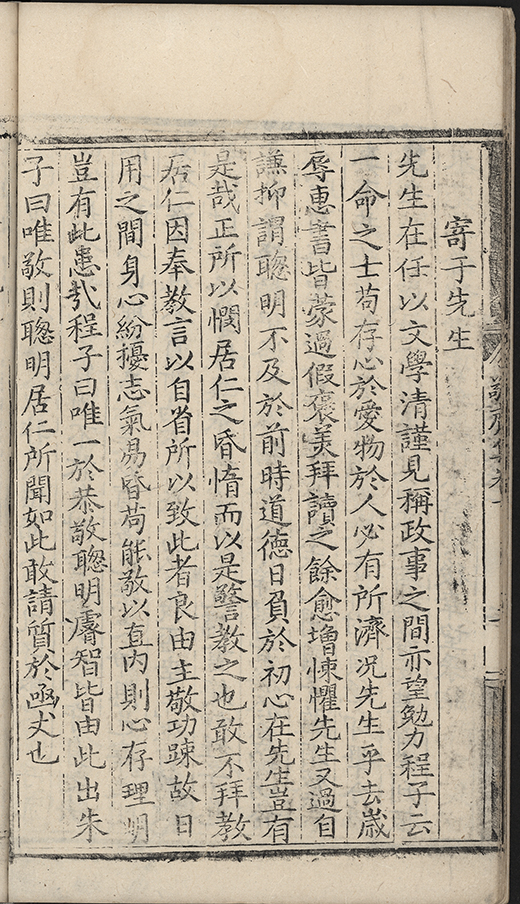 寄于先生
先生在任以文學清謹見稱政事之間亦望勉力程子云
一命之士苟存心於愛物於人必有所濟况先生乎去歲
辱惠書皆蒙過假褒美拜讀之餘愈增悚懼先生又過自
謙抑謂聦明不及於前時道德日負於初心在先生豈有
是哉正所以憫居仁之昏惰而以是警教之也敢不拜教
居仁因奉教言以自省所以致此者良由主敬功踈故日
用之間身心紛擾志氣昜昏苟能敬以直内則心存理明
豈有此患㢤程子曰唯一於恭敬聦明睿智皆由此出朱
子曰唯敬則聦明居仁所聞如此敢請質於凾丈也